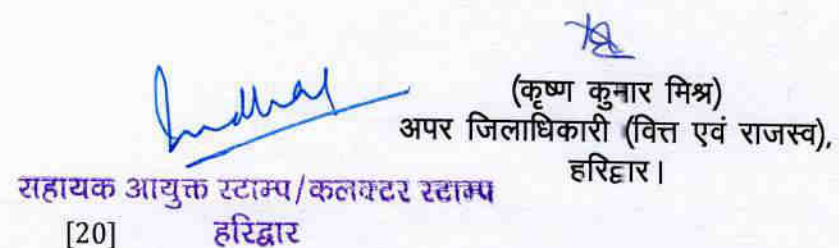 (कृष्ण कुमार मिश्र)
अपर जिलाधिकारी (वित्त एवं राजस्व),
हरिद्वार।
सहायक आयुक्त स्टाम्प/कलक्टर स्टाम्प
हरिद्वार
[20]